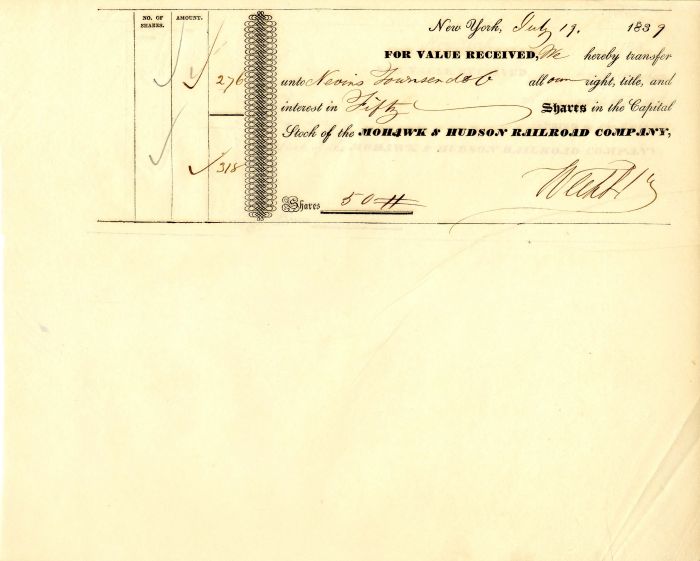 NO. OF SHARES.
AMOUNT.
New York, July 19, 1839
FOR VALUE RECEIVED, We hereby transfer
276
unto Nevins Townsend & Co all our right, title, and
interest in Fifty Shares in the Capital
Stock of the MOHAWK & HUDSON RAILROAD COMPANY,
318
Shares 50